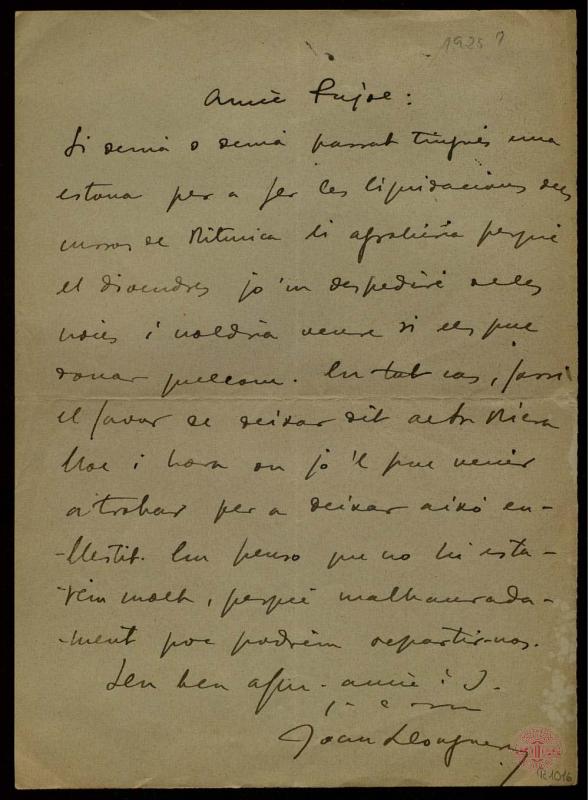 1925?
Amic Pujol:
Si demà o demà passat tingués una
estona per a fer les liquidacions dels
cursos de Rítmica li agrahiria perquè
el divendres jo'm despediré de les
noies i voldria veure si els puc
donar quelcom. En tal cas, fassi
el favor de deixar dit al Sr. Riera
lloc i hora on jo'l puc venir
a trobar per a deixar això en-
-llestit. Em penso que no hi esta-
-rem molt, perquè malhaurada-
-ment poc podrèm repartir-nos.
Seu ben afm. amic i S.
Joan Llongueras
R.1016